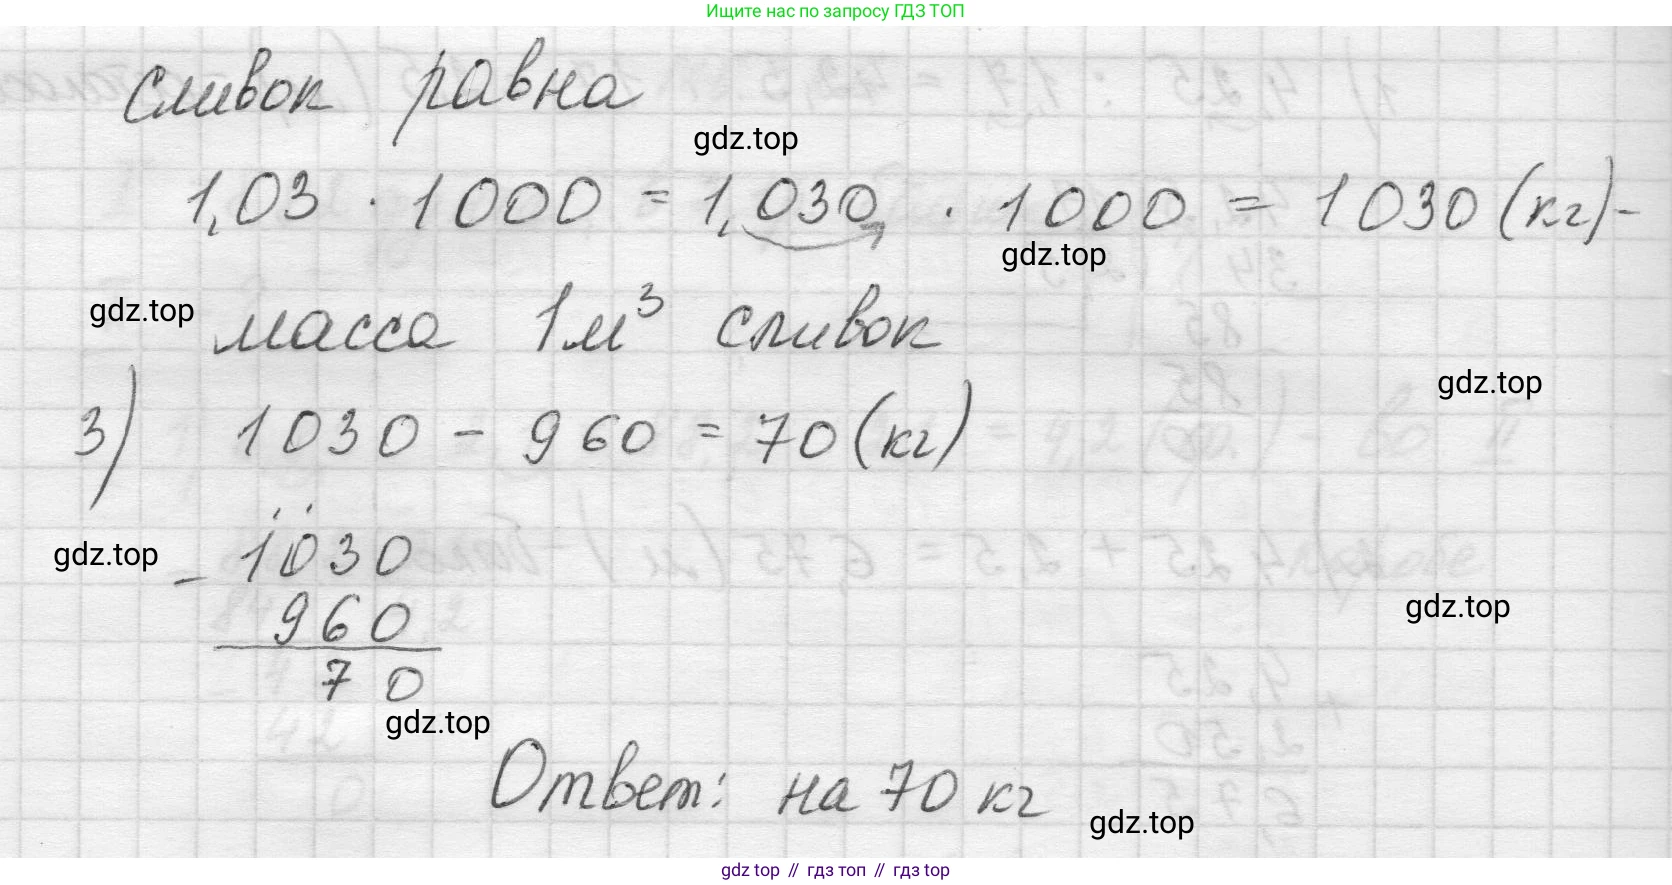 Ищите нас по запросу ГДЗ ТОП
сливок равна
gdz.top
1,03 · 1000 = 1,030 · 1000 = 1030 (кг) -
gdz.top
gdz.top
масса 1 м³ сливок
gdz.top
3) 1030 - 960 = 70 (кг)
gdz.top
- 1030
960
gdz.top
70
gdz.top
Ответ: на 70 кг
gdz.top
gdz top // гдз топ // gdz top